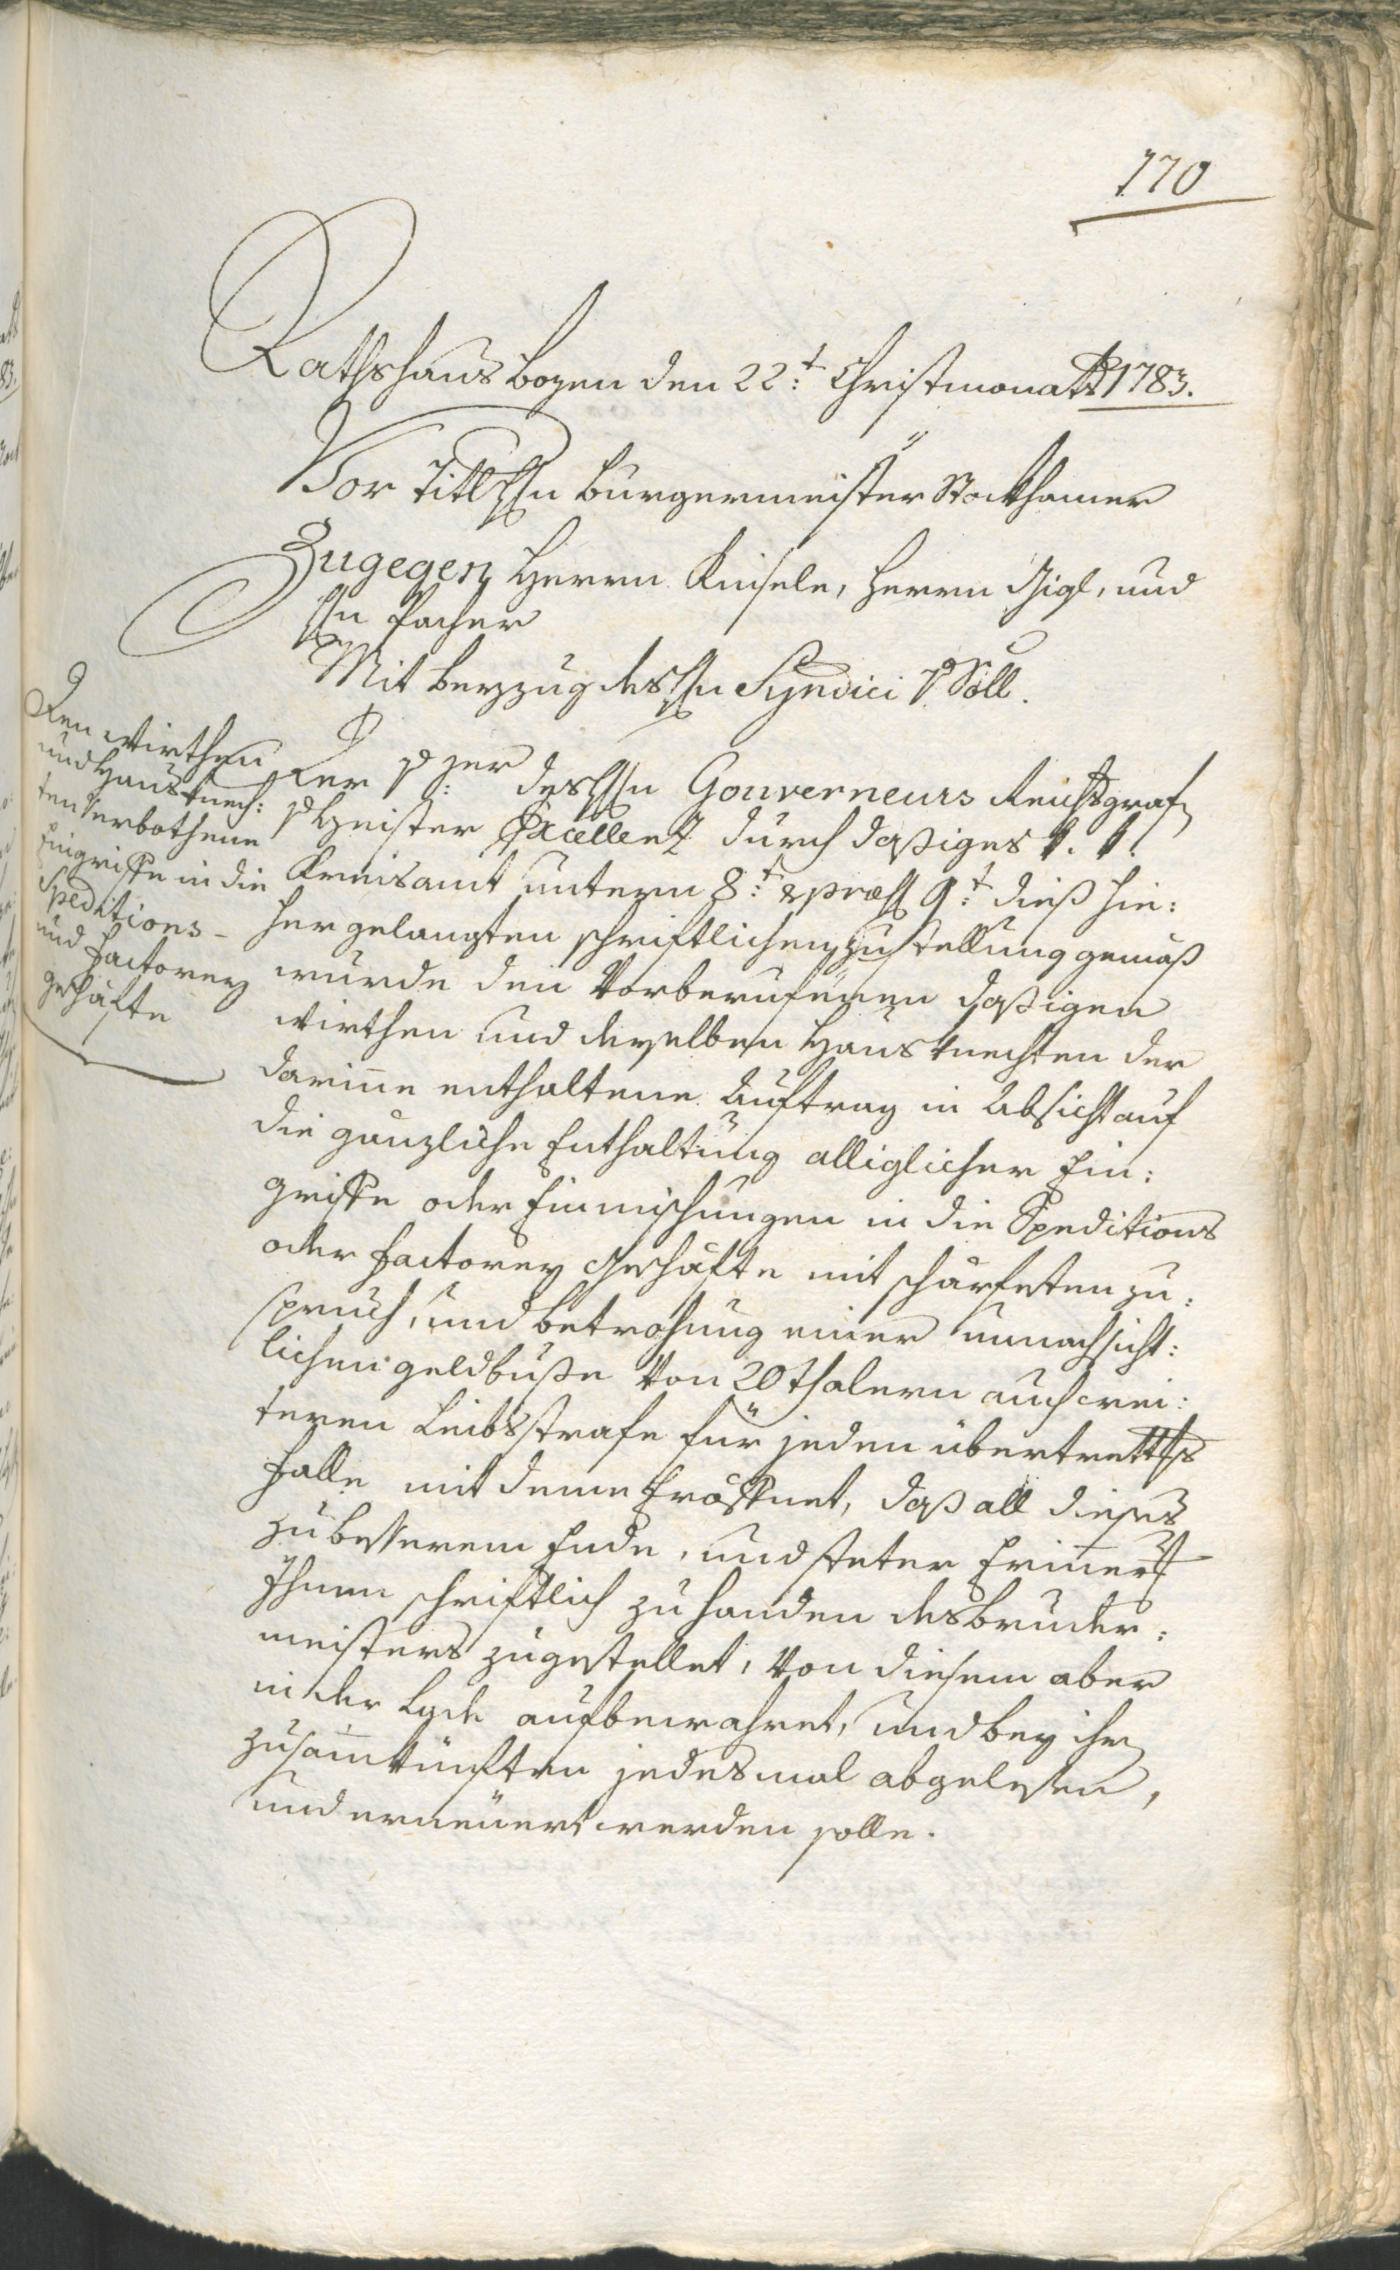 170
Rathshaus Bozen den 22:t Christmonats 1783.
Vor Titl Hrn Bürgermeister Stockhamer
Zugegen Herrn Kinsele, Herrn Gigl, und
Hrn Pacher
Mit Beyzug des Hrn Syndici v Söll.
Den Wirthen
und Hausknech:
ten Verbothene
Eingriffe in die
Speditions-
und Factorey
geschäfte
Der des Hrn Gouverneurs Reichsgrafen
v Heister Excellenz durch dasiges k. k.
Kreisamt untern 8:t & praes 9:t dieß hie:
her gelangten schriftlichen Zustellung gemäß
wurde den Vorberufenen dasigen
Wirthen und derselben Hausknechten der
darinne enthaltene Auftrag in Absicht auf
die gänzliche Enthaltung alliglicher Ein:
griffe oder Einmischungen in die Speditions
oder Factorey Geschäfte mit schärfesten zu:
spruch, und betrohung einer unnachsicht:
lichen geldbuße von 20 thalern auch wei:
teren Leibsstrafe für jeden übertrettungs
Falle mit deme Eröffnet, daß all dieses
zu besserem Ende, und steter Erinnerung
Ihnen schriftlich zu handen des bruder:
meisters zugestellet, von diesem aber
in der Lade aufbewahret, und bey ihren
zusammkünften jedesmal abgelesen,
und erneuert werden solle.